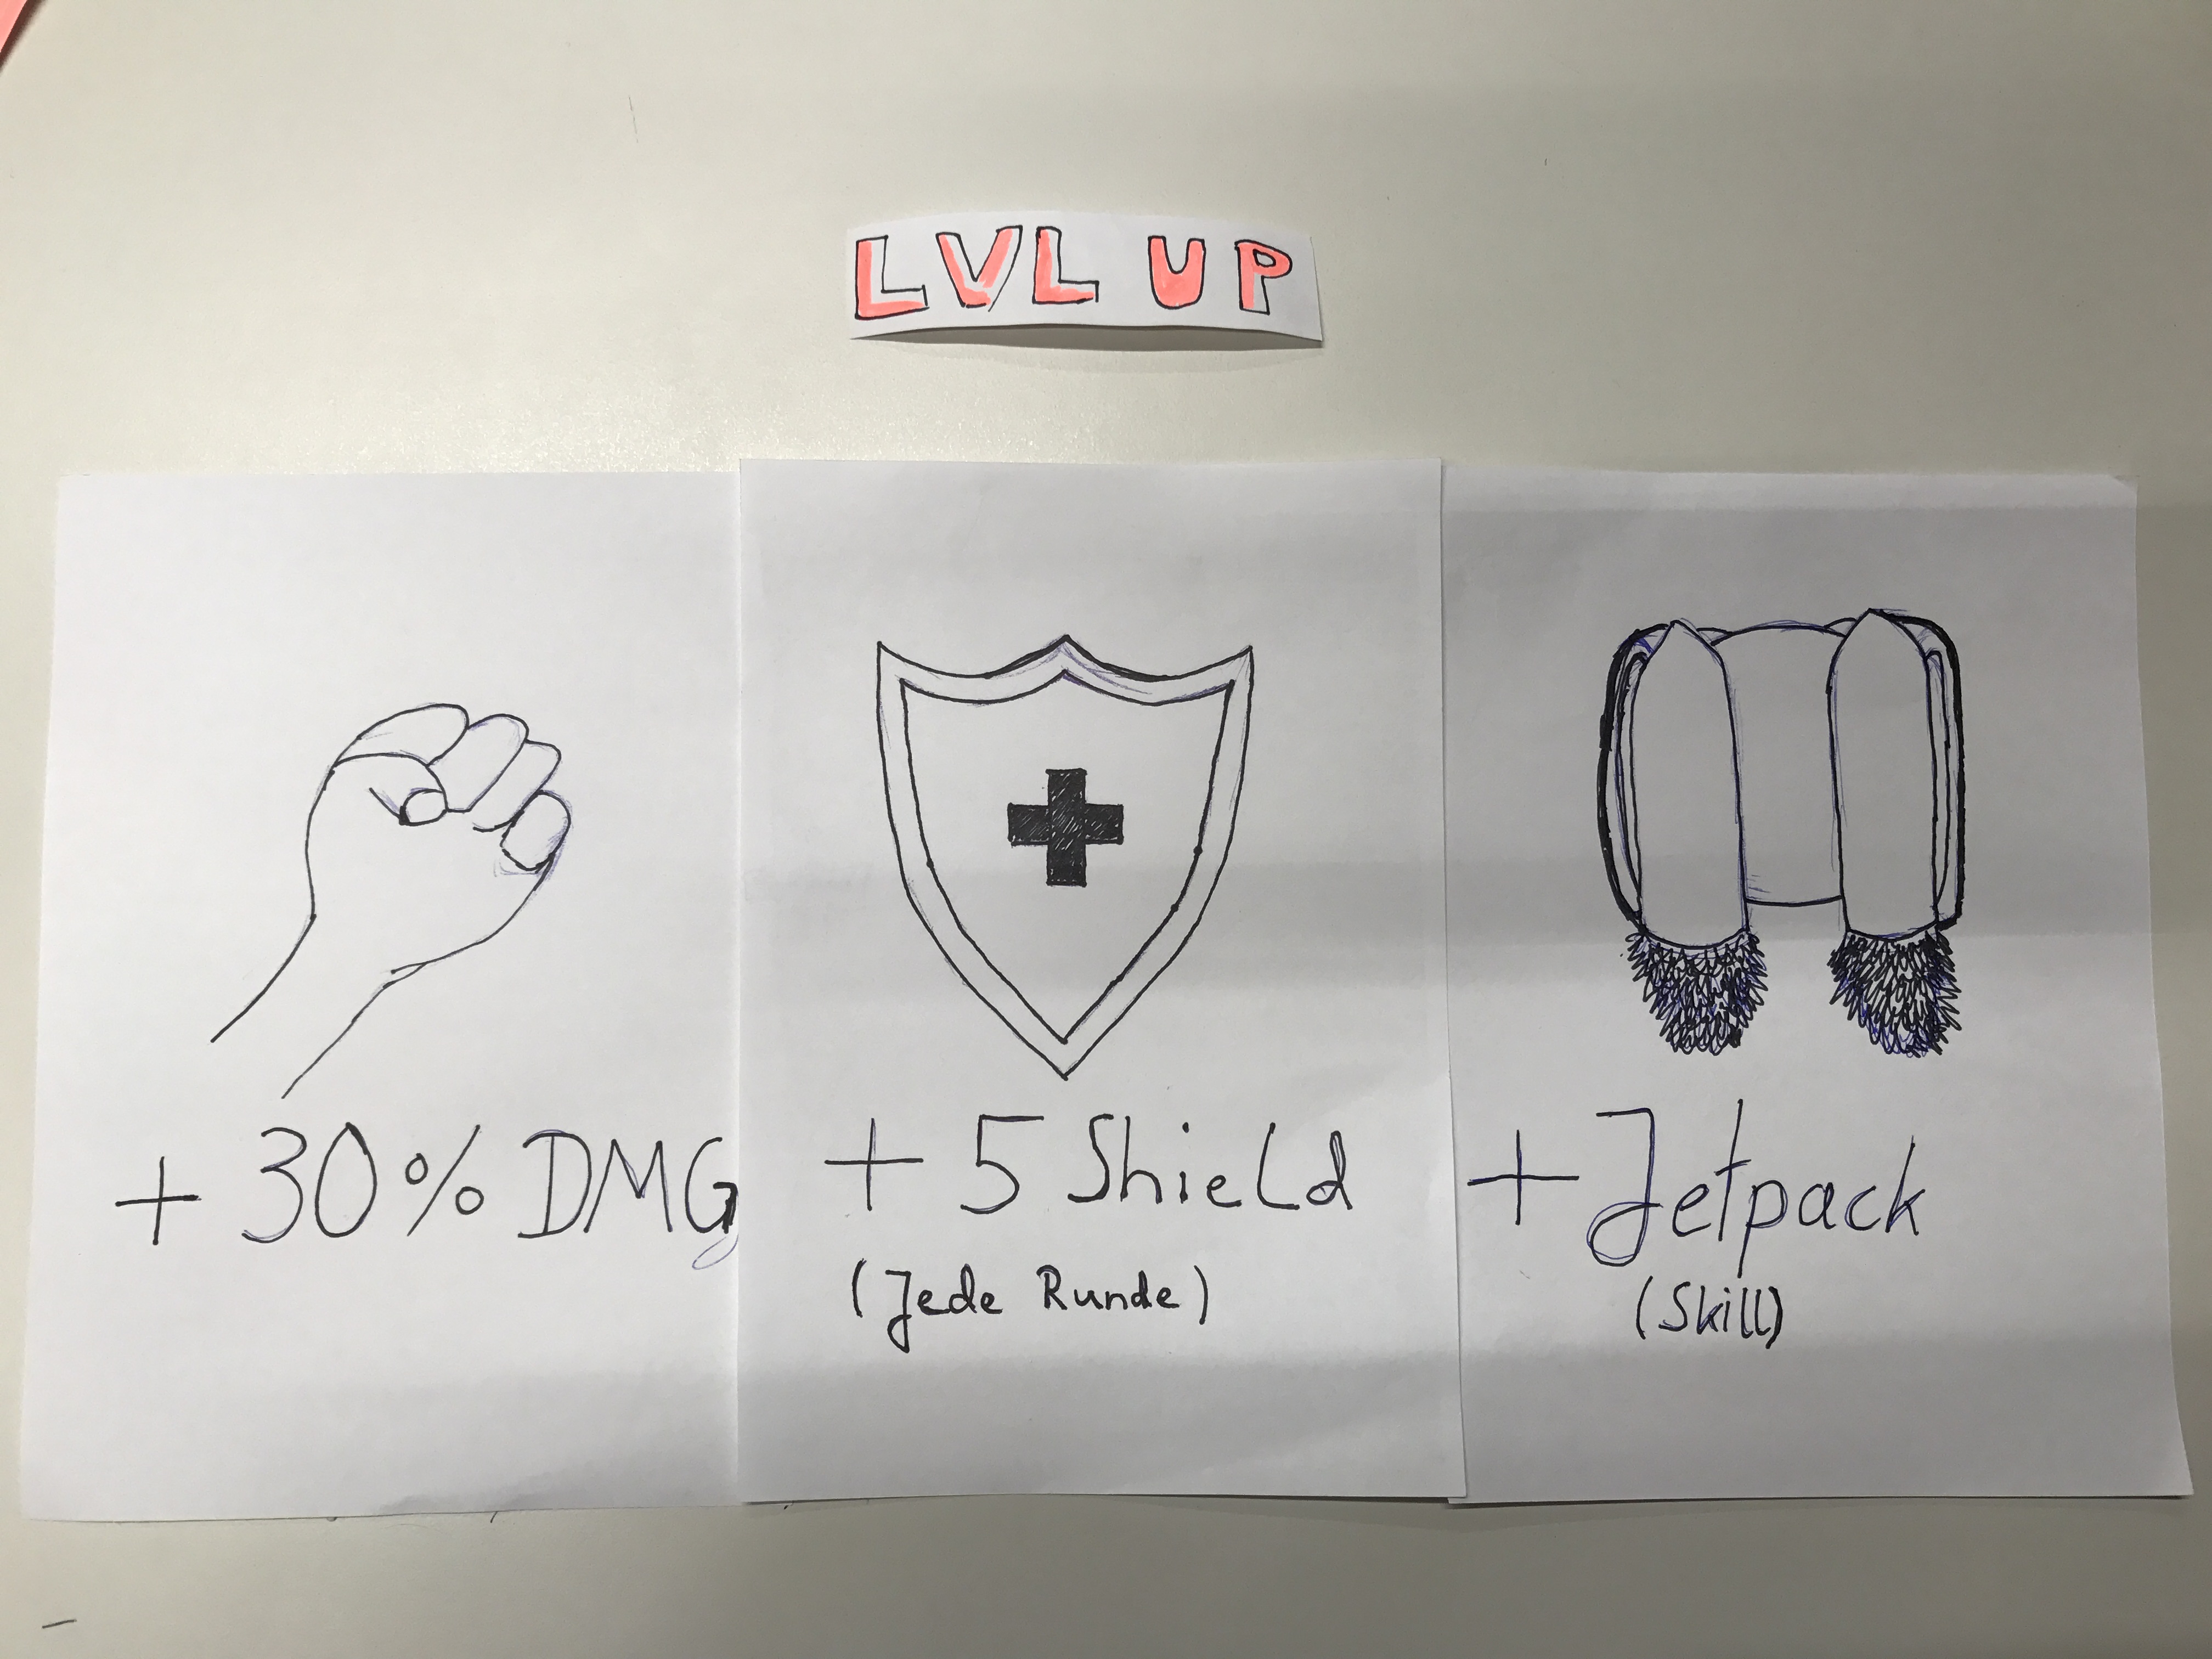 LVL UP
+ 30% DMG
+ 5 Shield
(Jede Runde)
+ Jetpack
(Skill)